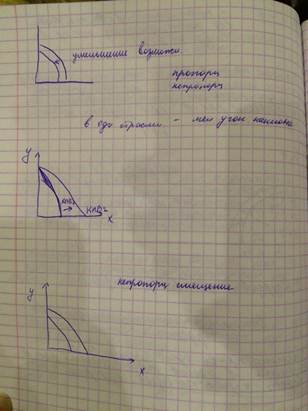 уменьшение возможн.
пропорц
непропорц
в одн отрасли - мен угол наклона
y
КПВ1
КПВ2
x
непропорц смещение
y
x